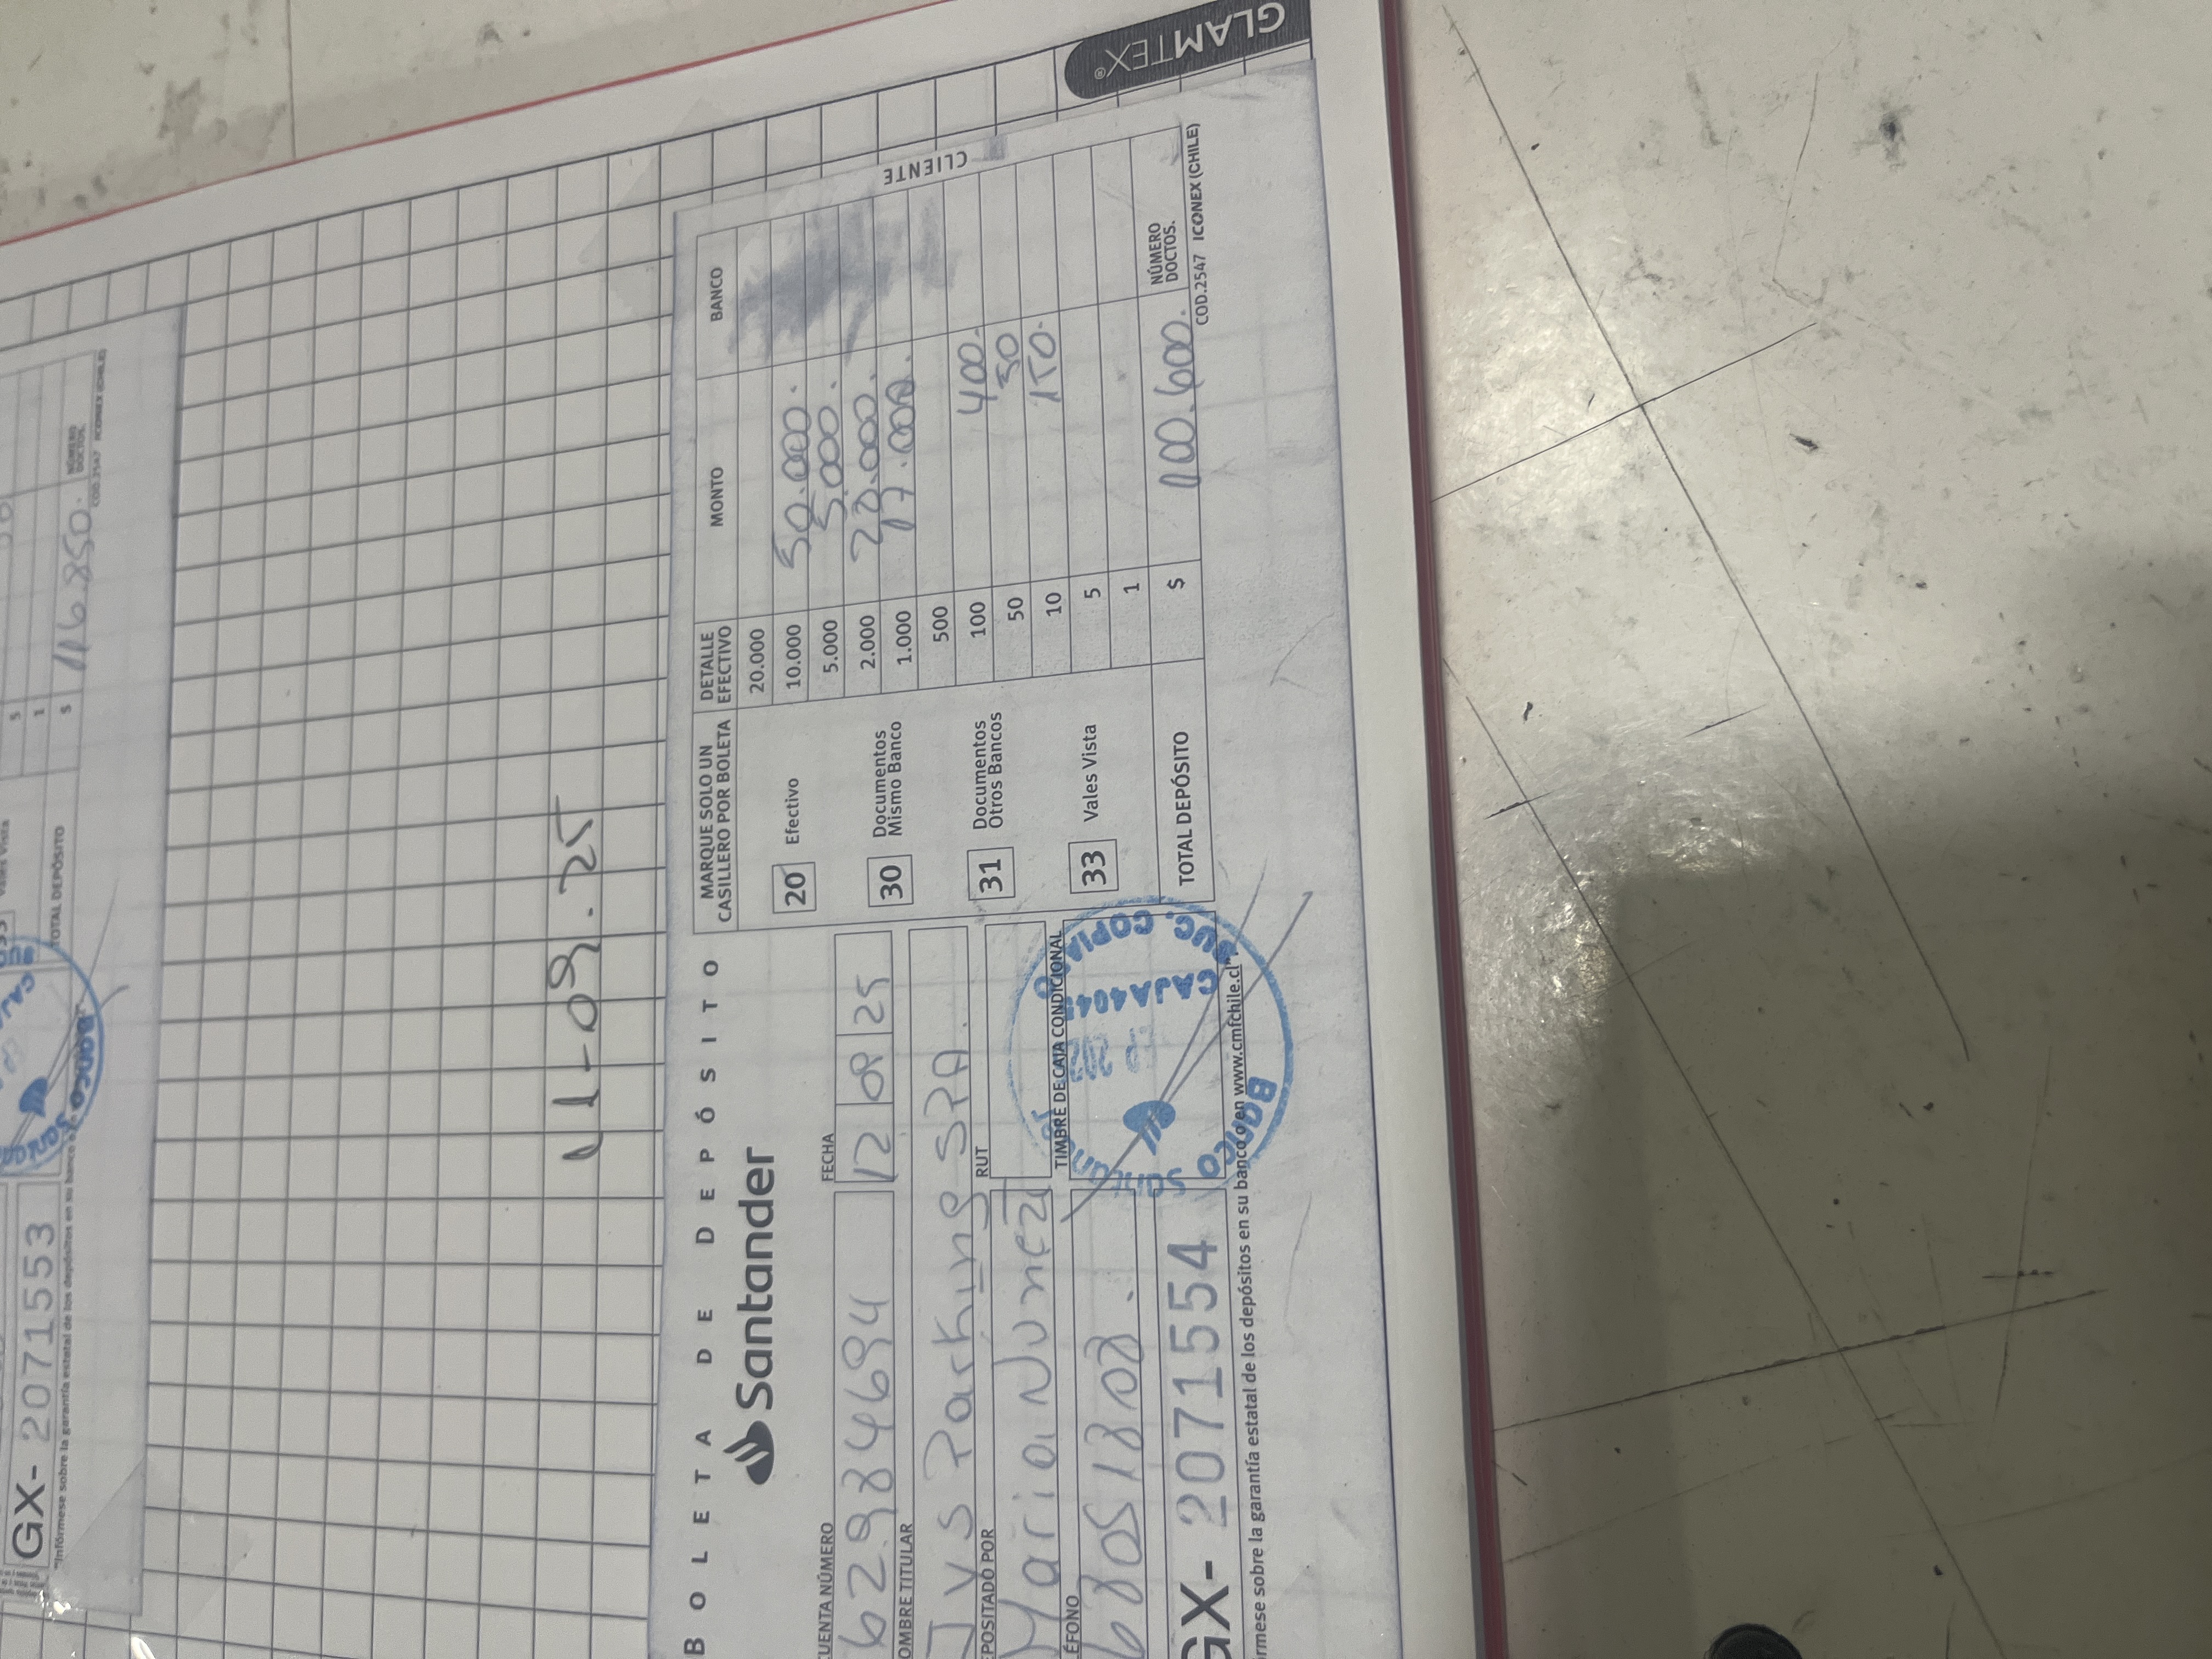 GLAMTEX®
1
$
116.850.
NÚMERO
DOCTOS.
COD.2547 ICONEX (CHILE)
TOTAL DEPÓSITO
GX- 2071553
"Infórmese sobre la garantía estatal de los depósitos en su banco
11-09.25
BOLETA DE DEPÓSITO
Santander
CUENTA NÚMERO
FECHA
12 09 25
NOMBRE TITULAR
JVS Parking SPA.
DEPOSITADO POR
RUT
Maria Nuñez
TELÉFONO
TIMBRE DE CAJA CONDICIONAL
Banco Santander
CAJA404
SUC. COPIAPO
GX- 2071554
fórmese sobre la garantía estatal de los depósitos en su banco o en www.cmfchile.cl"
MARQUE SOLO UN
CASILLERO POR BOLETA
DETALLE
EFECTIVO
MONTO
BANCO
20 Efectivo
30 Documentos
Mismo Banco
31 Documentos
Otros Bancos
33 Vales Vista
20.000
10.000 50.000.
5.000 5.000.
2.000
1.000 17.000.
500
100 400.
50 50
10 150.
5
1
TOTAL DEPÓSITO $ 100.600.
NÚMERO
DOCTOS.
COD.2547 ICONEX (CHILE)
CLIENTE